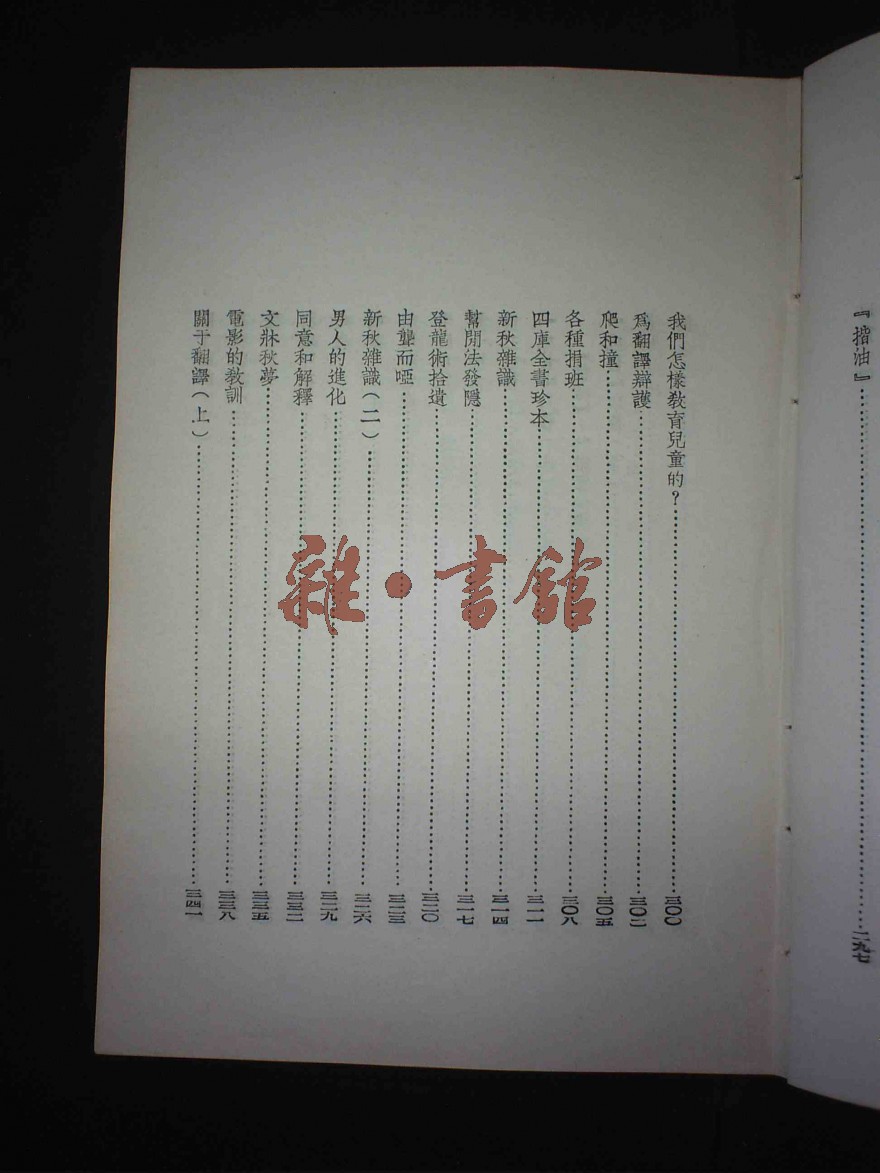 『揩油』……二九七
我們怎樣敎育兒童的?……三〇〇
爲翻譯辯護……三〇二
爬和撞……三〇五
各種捐班……三〇八
四庫全書珍本……三一一
新秋雜識……三一四
幫閒法發隱……三一七
登龍術拾遺……三二〇
由聾而啞……三二三
新秋雜識(二)……三二六
男人的進化……三二九
同意和解釋……三三二
文牀秋夢……三三五
電影的敎訓……三三八
關于翻譯(上)……三四一
雜·書館